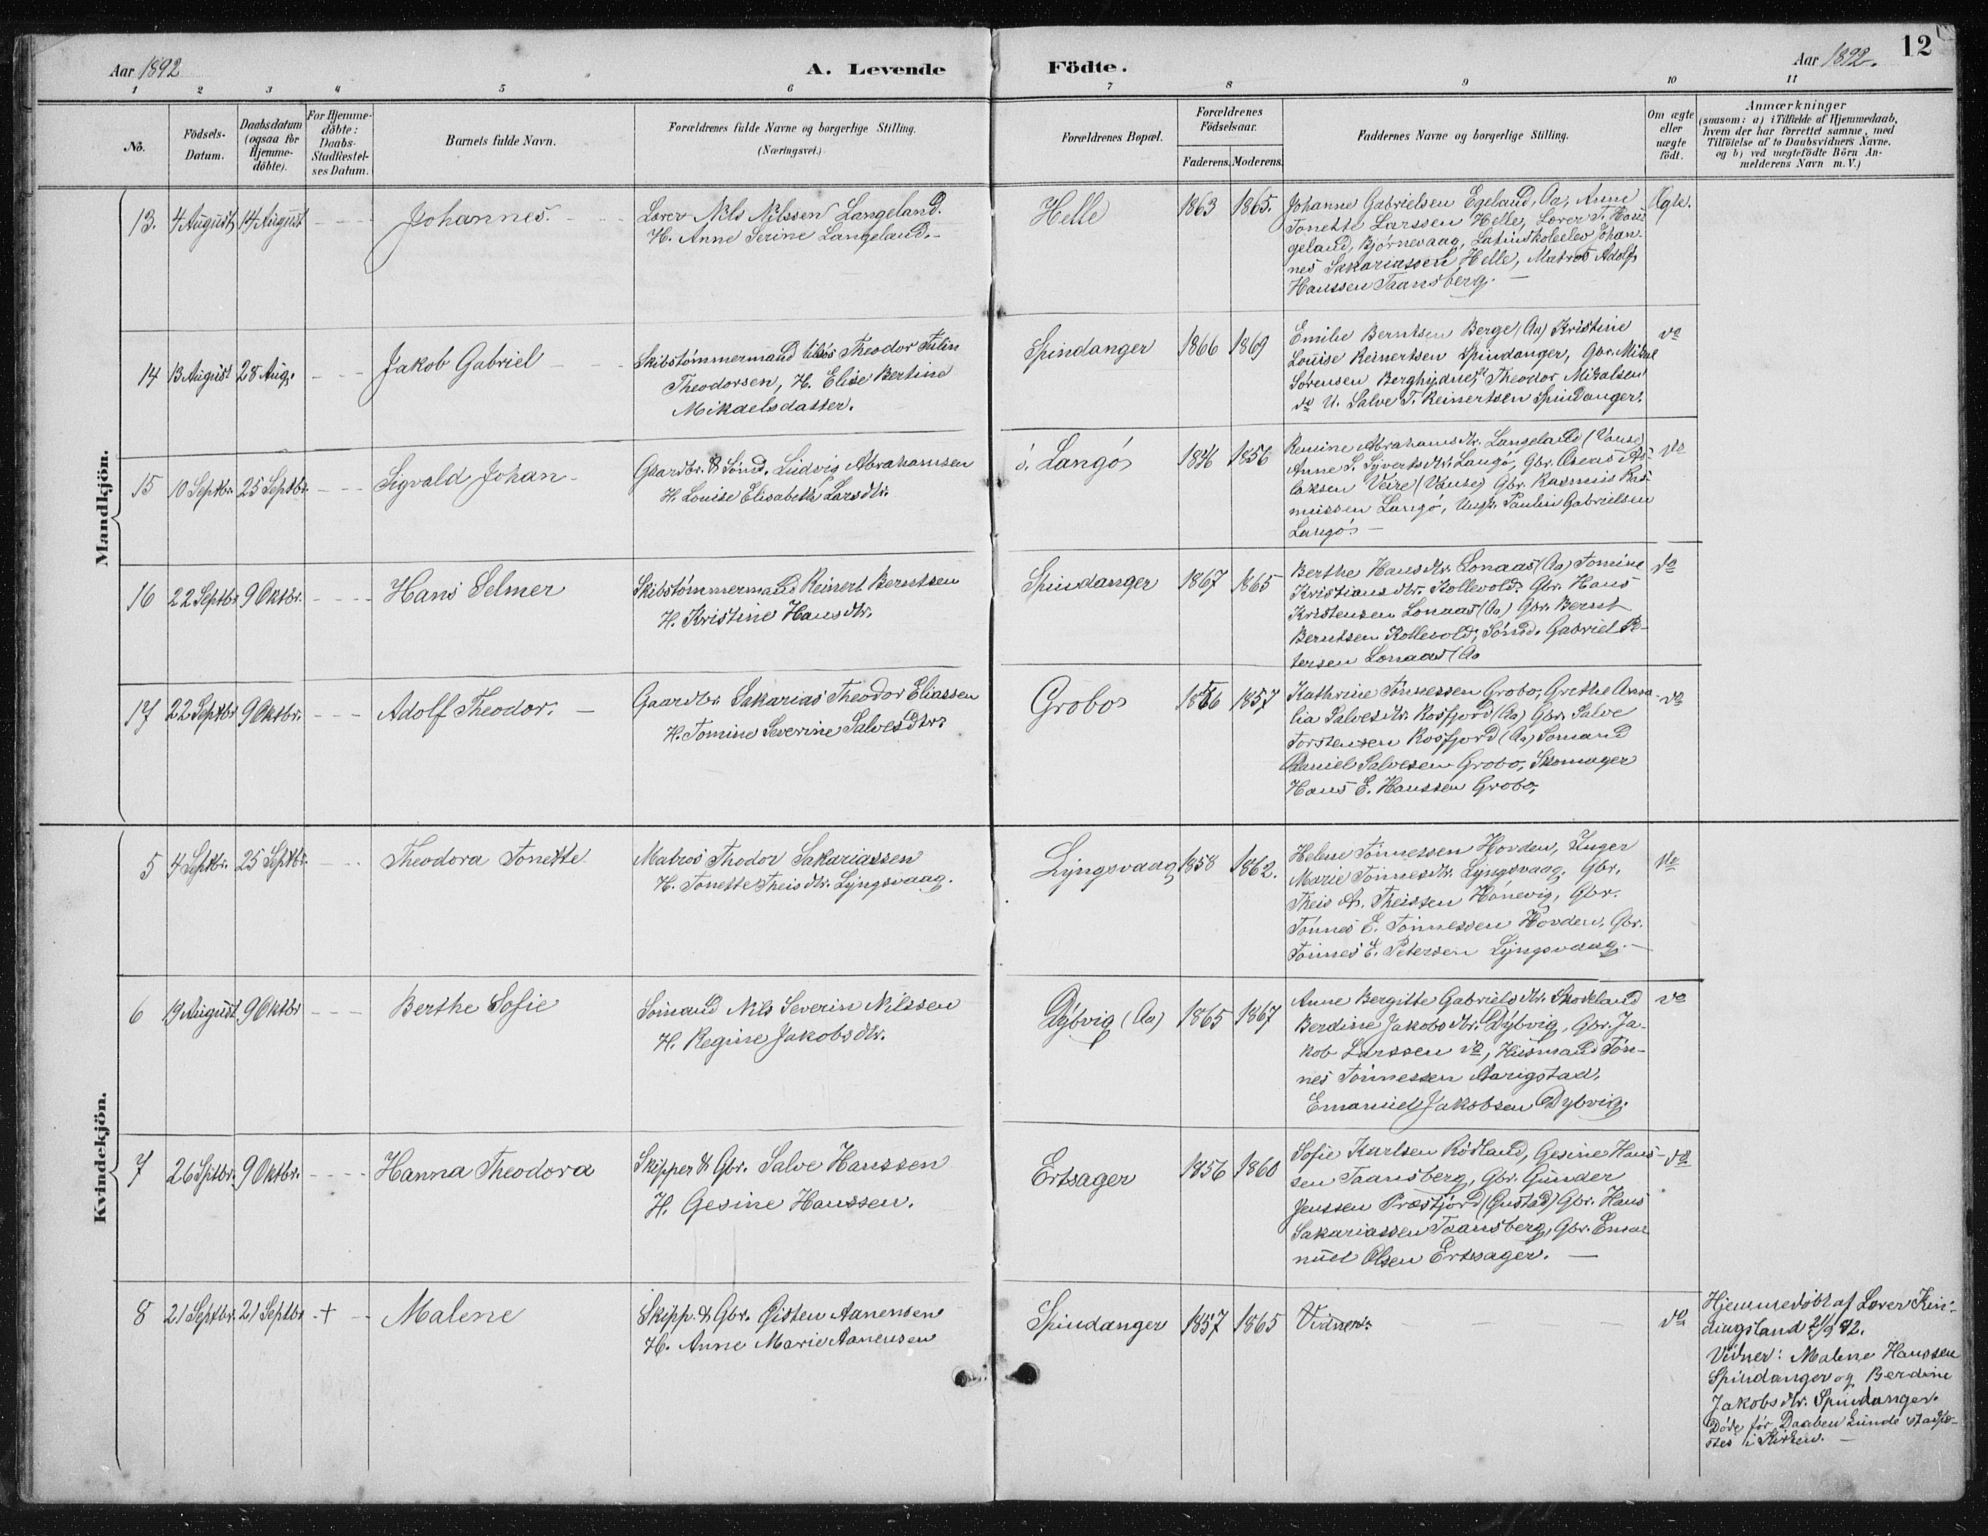 Aar 1892
A. Levende
Födte.
Aar 1892.
12
1 2 3 4 5 6 7 8 9 10 11
No.
Födsels-
Datum.
Daabsdatum
(ogsaa for
Hjemme-
döbte).
For Hjemme-
döbte:
Daabs-
Stadfæstel-
ses Datum.
Barnets fulde Navn.
Forældrenes fulde Navne og borgerlige Stilling.
(Næringsvei).
Forældrenes Bopæl.
Forældrenes
Födselsaar.
Faderens. Moderens.
Faddernes Navne og borgerlige Stilling.
Om ægte
eller
uægte
födt.
Anmærkninger
(saasom: a) i Tilfælde af Hjemmedaab,
hvem der har forrettet samme, med
Tilföielse af to Daabsvidners Navne,
og b) ved uægtefödte Börn An-
melderens Navn m. V.)
Mandkjön.
13. 4 August 14 August - - - Johannes.
Lærer Nils Nilssen Langeland.
H. Anne Serine Langeland.
Helle 1863 1865.
Johanne Gabrielsen Egeland, Aa, Anne
Tonette Larssen Helle, Lærer T. Hau-
geland, Bjørnevaag, Latinskoleelev Johan-
nes Sakariassen Helle, Matros Adolf
Hanssen Taansberg. -
Ægte.
14 13 August 28 Aug. - - - Jakob Gabriel
Skibstømmermand Theodor Tulin
Theodorsen, H. Elise Bertine
Mikaelsdatter.
Spindanger 1866 1869
Emilie Berntsen Berge (Aa) Kristine
Louise Reinertsen Spindanger, Gbr. Mikal
Sørensen Theodor Mikalsen
do U. Salve T. Reinertsen Spindanger.
do
15 10 Septbr. 25 Septbr. - - - Sigvald Johan -
Gaardbr. & Sømd. Ludvig Abrahamsen
H. Louise Elisabeth Larsdtr.
Langø 1856
Remine Abrahamsdtr. Langeland (Vanse)
Anne S. Syvertsdtr. Langø, Gbr. Oseas As-
laksen Veire (Vanse) Gbr. Rasmus Ras-
mussen Langø, Ungk. Paulin Gabrielsen
Langø -
do
16 22 Septbr. 9 Oktbr. - - - Hans Selmer
Skibstømmermand Reinert Berntsen
H. Kristine Hansdtr.
Spindanger 1867 1865
Berthe Hansdtr. Lonaas (Aa) Tomine
Kristiansdtr. Kollevold. Gbr. Hans
Kristensen Lonaas (Aa) Gbr. Bernt
Berntsen Kollevold, Sømd. Gabriel Pe-
tersen Lonaas (Aa
do
17 22 Septbr 9 Oktbr. - - - Adolf Theodor. -
Gaardbr. Sakarias Theodor Eliassen
H. Tomine Severine Salvesdtr.
Grobo 1856 1857
Kathrine Tønnessen Grobo, Grethe Ama-
lia Salvesdtr. Rosfjord (Aa) Gbr. Salve
Torstensen Rosfjord (Aa) Sømand
Daniel Salvesen Grobo, Skomager
Hans E. Hanssen Grobo.
do
Kvindekjön.
5 4 Septbr. 25 Septbr. - - - Theodora Tonette
Matros Thodor Sakariassen
H. Tonette Theisdtr. Lyngsvaag.
Lyngsvaag 1858 1862.
Helene Tønnessen Hovden, Inger
Marie Tønnesdtr. Lyngsvaag. Gbr.
Theis A. Theissen Hønevig, Gbr.
Tønnes E. Tønnessen Hovden, Gbr.
Tønnes E. Petersen Lyngsvaag. -
do
6 19 August 9 Oktbr - - - Berthe Sofie
Sømand Nils Severin Nilssen
H. Regine Jakobsdtr.
Dybvig (Aa) 1865 1867
Anne Bergitte Gabrielsdtr. Skodeland
Berdine Jakobsdtr. Dybvig, Gbr. Ja-
kob Larssen do, Husmand Tøn-
nes Tønnessen Aarigstad,
Emanuel Jakobsen Dybvig.
do
7 26 Sptbr. 9 Oktbr. - - - Hanna Theodora
Skipper & Gbr. Salve Hanssen
H. Gesine Hanssen.
Ertsager 1856 1860
Sofie Karlsen Rødland, Gesine Hans-
sen Taansberg, Gbr. Gunder
Jenssen Præstfjord (Gustad) Gbr. Hans
Sakariassen Taansberg, Gbr. Ema-
nuel Olsen Ertsager. -
do
8 21 Septbr. 21 Septbr + - Malene
Skipp. & Gbr. Øisten Aanensen
H. Anne Marie Aanensen
Spindanger 1857 1865
Vidner. - - - -
do
Hjemmedøbt af Lærer Kin-
dingsland 21/9 92.
Vidner: Malene Hanssen
Spindanger og Berdine
Jakobsdtr. Spindanger.
Døde før Daaben kunde stadfæ-
stes i Kirken. -